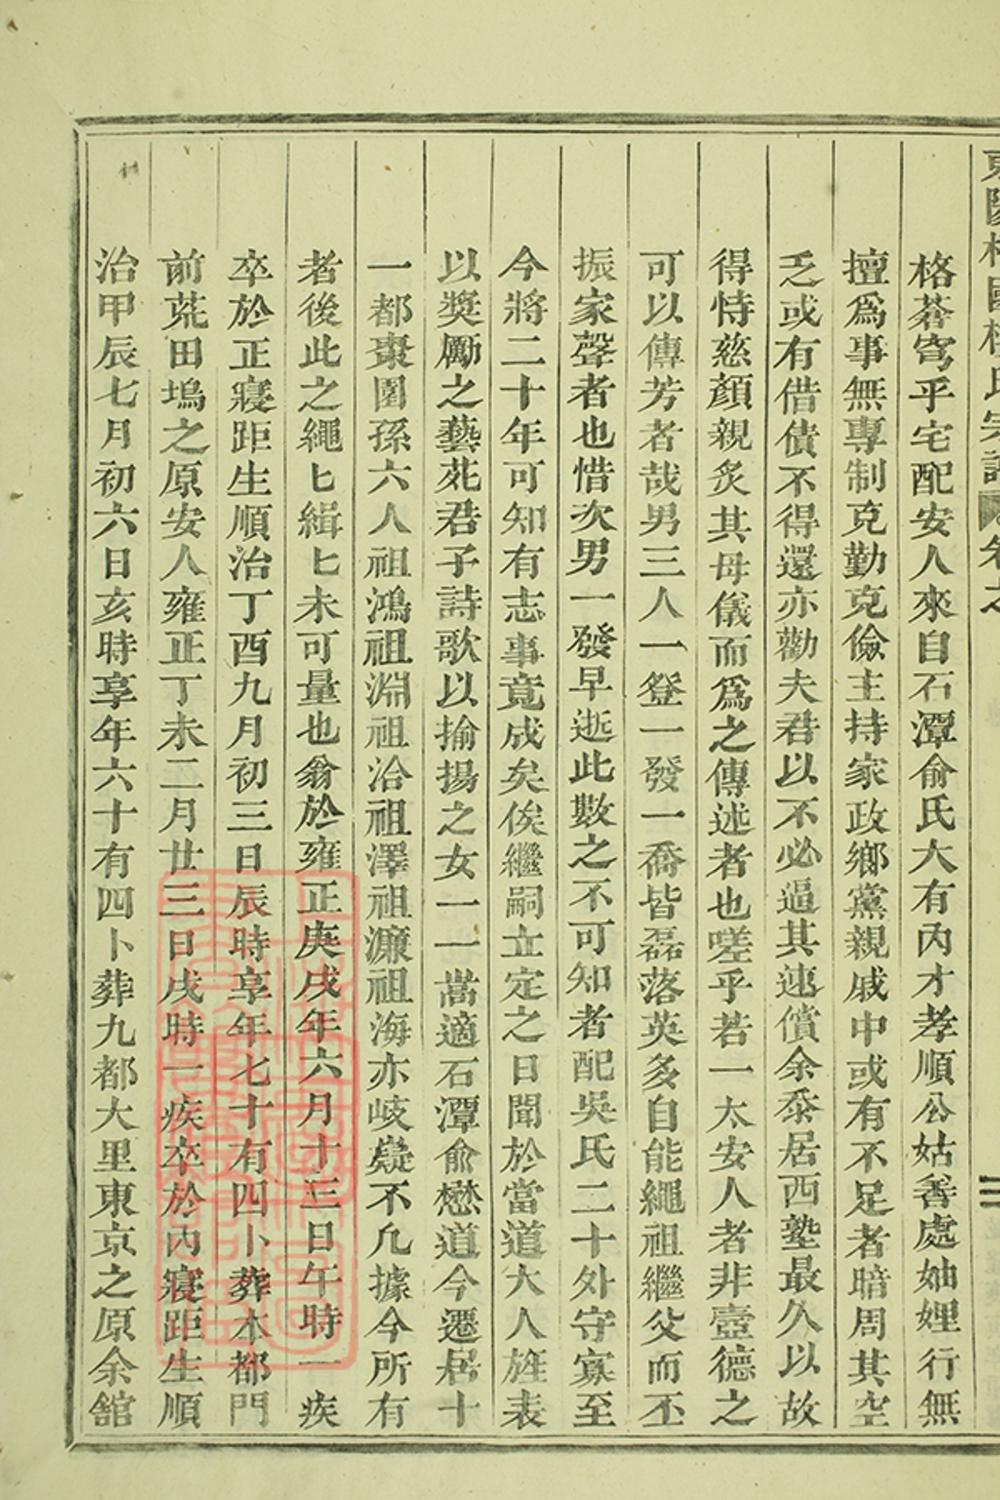 格蒼穹乎宅配安人來自石潭俞氏大有內才孝順公姑善處妯娌行無
擅爲事無專制克勤克儉主持家政鄉黨親戚中或有不足者暗周其空
乏或有借債不得還亦勸夫君以不必逼其速償余忝居西塾最久以故
得恃慈顏親炙其母儀而爲之傳述者也嗟乎若一太安人者非壼德之
可以傳芳者哉男三人一登一發一喬皆磊落英多自能繩祖繼父而丕
振家聲者也惜次男一發早逝此數之不可知者配吳氏二十外守寡至
今將二十年可知有志事竟成矣俟繼嗣立定之日聞於當道大人旌表
以奬勵之藝苑君子詩歌以揄揚之女一一當適石潭俞懋道今遷居十
一都棗園孫六人祖鴻祖淵祖洽祖澤祖濂祖海亦岐嶷不凢據今所有
者後此之繩匕緝匕未可量也翁於雍正庚戌年六月十三日午時一疾
卒於正寢距生順治丁酉九月初三日辰時享年七十有四卜葬本都門
前茺田塢之原安人雍正丁未二月廿三日戌時一疾卒於內寢距生順
治甲辰七月初六日亥時享年六十有四卜葬九都大里東京之原余館